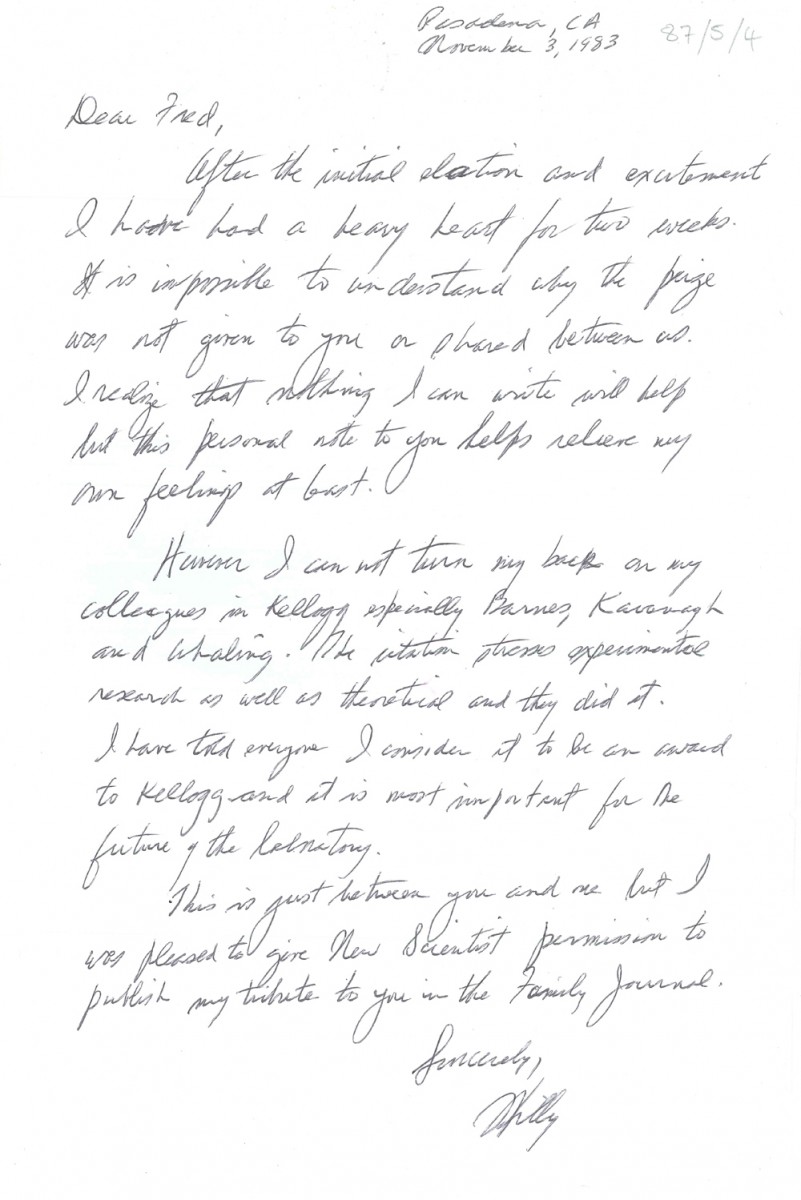 Pasadena, CA
November 3, 1983
87/5/4
Dear Fred,
After the initial elation and excitement
I have had a heavy heart for two weeks.
It is impossible to understand why the prize
was not given to you or shared between us.
I realize that nothing I can write will help
but this personal note to you helps relieve my
own feelings at least.
However I can not turn my back on my
colleagues in Kellogg especially Barnes, Kavanagh
and Whaling. The citation stresses experimental
research as well as theoretical and they did it.
I have told everyone I consider it to be an award
to Kellogg and it is most important for the
future of the laboratory.
This is just between you and me but I
was pleased to give New Scientist permission to
publish my tribute to you in the Family Journal.
Sincerely,
Willy